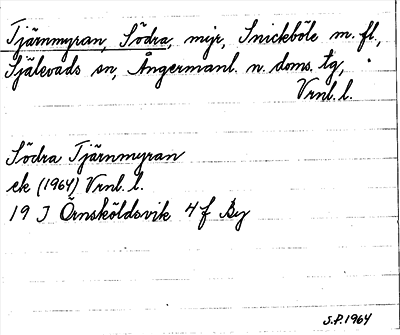 Tjärnmyran, Södra, myr, Snickböle m. fl.,
Själevads sn, Ångermanl. n. doms. tg,
Vrnl. l.
Södra Tjärnmyran
ek (1964) Vrnl. l.
19 J Örnsköldsvik 4 f By
S.P. 1964